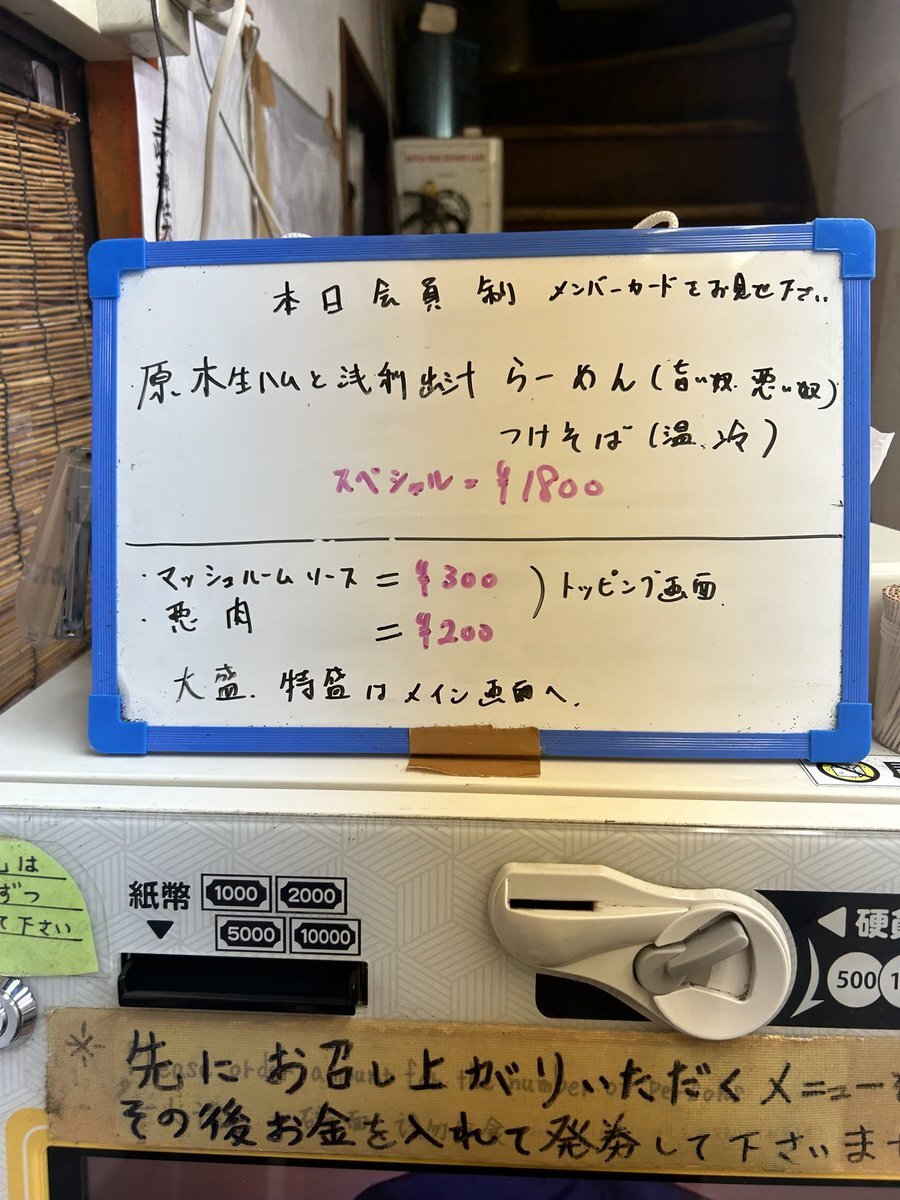 本日会員制 メンバーカードをお見せ下さい
原木生ハムと浅利出汁 らーめん(旨い奴.悪い奴)
つけそば(温、冷)
スペシャル=¥1800
・マッシュルームソース=¥300
・悪肉=¥200
トッピング画面
大盛.特盛はメイン画面へ.
紙幣 1000 2000
5000 10000
硬貨
500
は
ずつ
て下さい
※先にお召し上がりいただくメニューを
その後お金を入れて発券して下さいませ